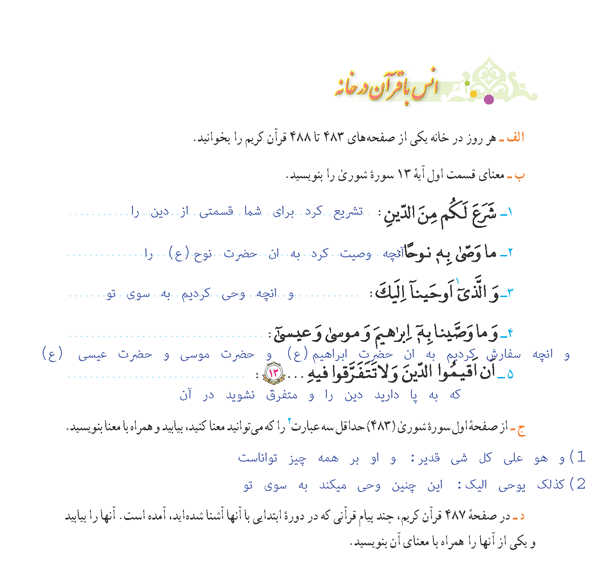 انس با قرآن در خانه
الف ـ هر روز در خانه یکی از صفحه‌های ۴۸۳ تا ۴۸۸ قرآن کریم را بخوانید.
ب ـ معنای قسمت اول آیهٔ ۱۳ سورهٔ شوریٰ را بنویسید.
۱ـ شَرَعَ لَکُم مِنَ الدّینِ: تشریع کرد برای شما قسمتی از دین را
۲ـ ما وَصّیٰ بِهٖ نوحًا: آنچه وصیت کرد به ان حضرت نوح(ع) را
۳ـ وَ الَّذیٓ اَوحَینآ اِلَیكَ:۱ و انچه وحی کردیم به سوی تو
۴ـ وَ ما وَصَّینا بِهٖٓ اِبراهیمَ وَ موسیٰ وَ عیسیٰٓ:
و انچه سفارش کردیم به ان حضرت ابراهیم(ع) و حضرت موسی و حضرت عیسی (ع)
۵ـ أَن اَقیمُوا الدّینَ وَ لا تَتَفَرَّقوا فیهِ ... ۱۳ :
که به پا دارید دین را و متفرق نشوید در آن
ج ـ از صفحهٔ اول سورهٔ شوریٰ (۴۸۳) حداقل سه عبارت۲ را که می‌توانید معنا کنید، بیابید و همراه با معنا بنویسید.
1) و هو علی کل شی قدیر: و او بر همه چیز تواناست
2) کذلک یوحی الیک: این چنین وحی میکند به سوی تو
د ـ در صفحهٔ ۴۸۷ قرآن کریم، چند پیام قرآنی که در دورهٔ ابتدایی با آنها آشنا شده‌اید، آمده است. آنها را بیابید
و یکی از آنها را همراه با معنای آن بنویسید.